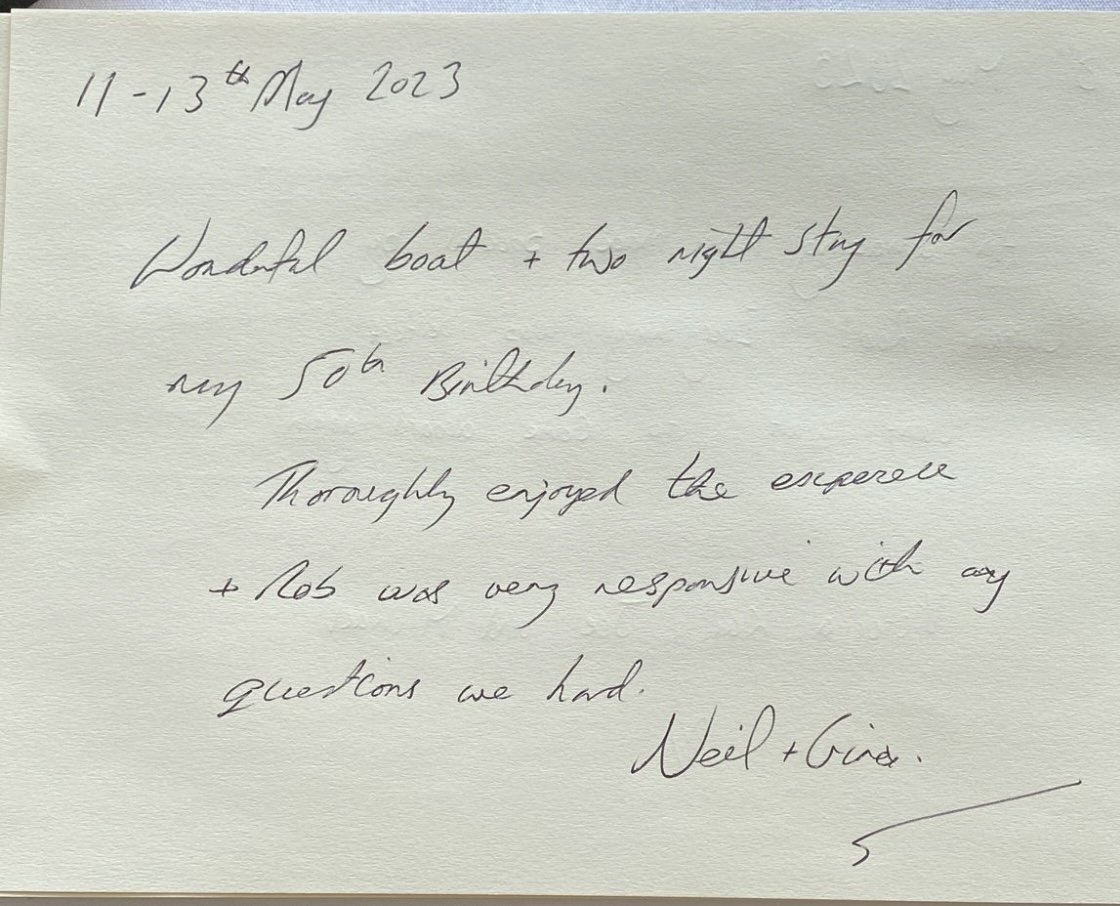 11-13th May 2023
Wonderful boat + two night stay for
my 50th Birthday.
Thoroughly enjoyed the experience
+ Rob was very responsive with any
questions we had.
Neil + Gina.